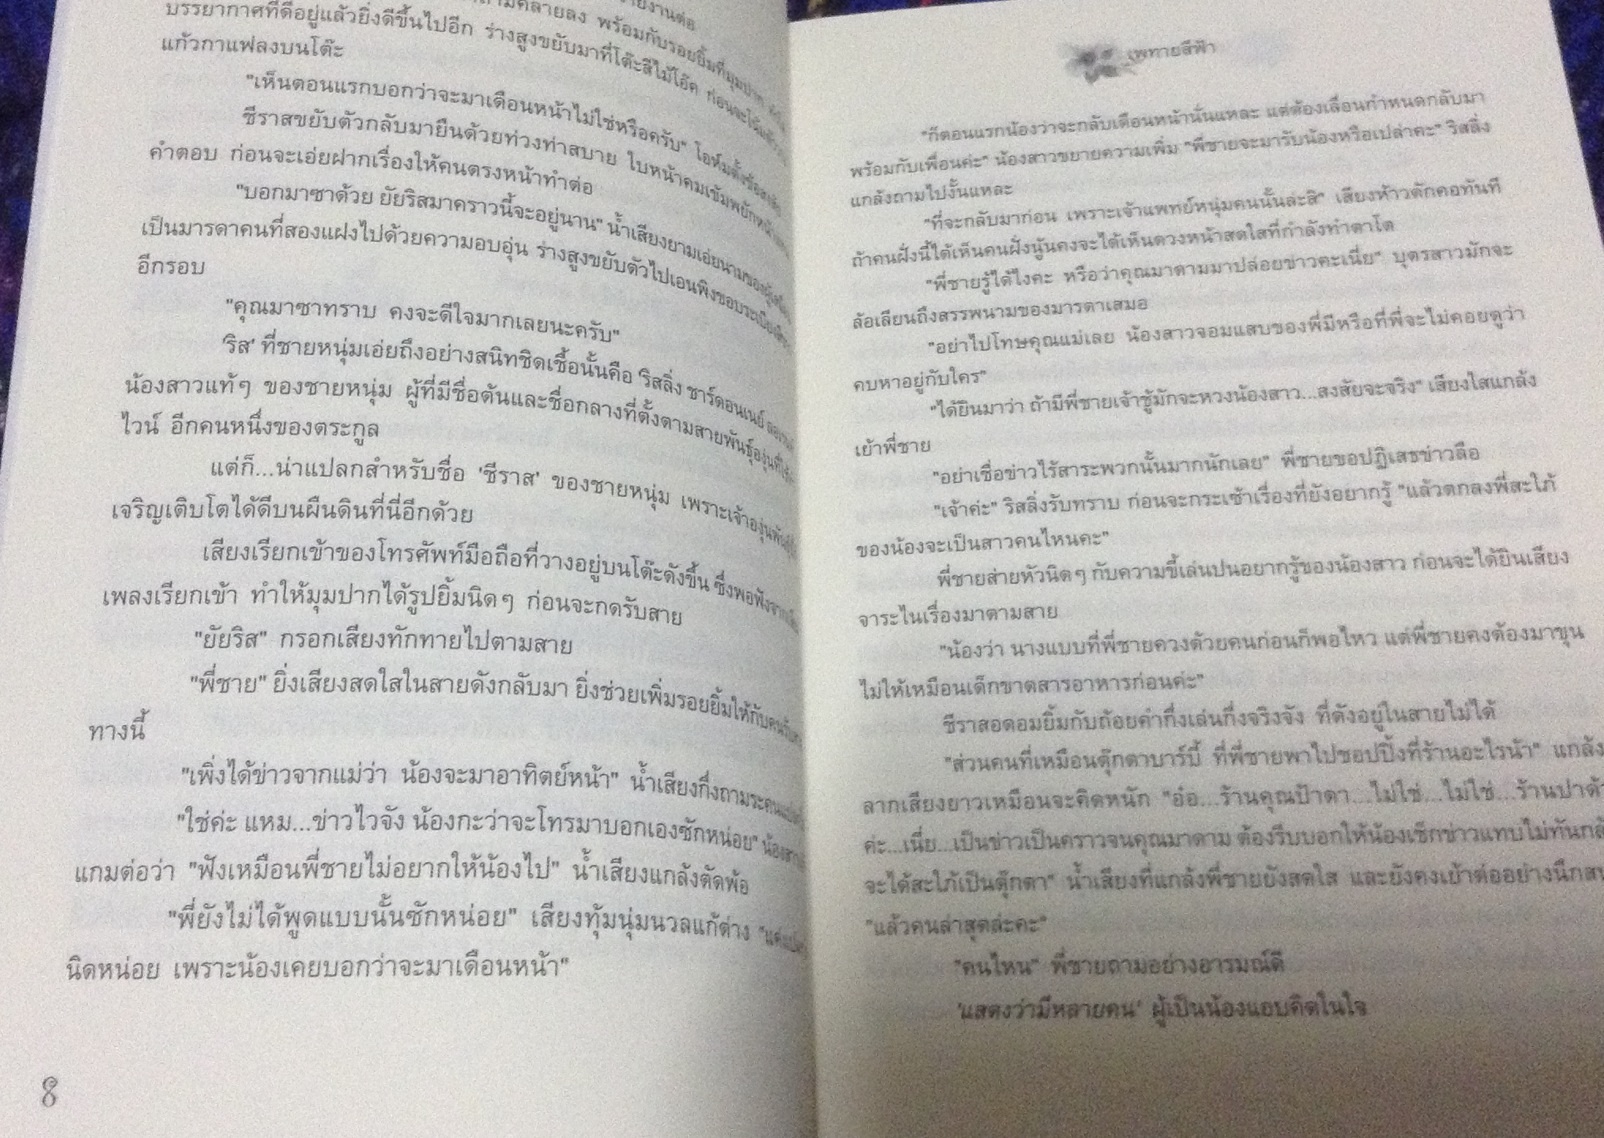 บรรยากาศที่ดีอยู่แล้วยิ่งดีขึ้นไปอีก ร่างสูงขยับมาที่โต๊ะสีไม้โอ๊ค
แก้วกาแฟลงบนโต๊ะ
"เห็นตอนแรกบอกว่าจะมาเดือนหน้าไม่ใช่หรือครับ"
ชีราสขยับตัวกลับมายืนด้วยท่วงท่าสบาย ใบหน้าคมเข้มพยักหน้า
คำตอบ ก่อนจะเอ่ยฝากเรื่องให้คนตรงหน้าทำต่อ
"บอกมาซาด้วย ยัยริสมาคราวนี้จะอยู่นาน" น้ำเสียงยามเอ่ยนามของผู้
เป็นมารดาคนที่สองแฝงไปด้วยความอบอุ่น ร่างสูงขยับตัวไปเอนพิงขอบระเบียง
อีกรอบ
"คุณมาซาทราบ คงจะดีใจมากเลยนะครับ"
'ริส' ที่ชายหนุ่มเอ่ยถึงอย่างสนิทชิดเชื้อนั้นคือ 'ริสลิ่ง ชาร์ดอนเนย์
น้องสาวแท้ๆ ของชายหนุ่ม ผู้ที่มีชื่อต้นและชื่อกลางที่ตั้งตามสายพันธุ์องุ่นที่ใช้
ไวน์ อีกคนหนึ่งของตระกูล
แต่ก็...น่าแปลกสำหรับชื่อ 'ชีราส' ของชายหนุ่ม เพราะเจ้าองุ่นพันธุ์
เจริญเติบโตได้ดีบนผืนดินที่นี่อีกด้วย
เสียงเรียกเข้าของโทรศัพท์มือถือที่วางอยู่บนโต๊ะดังขึ้น ซึ่งพอฟังจาก
เพลงเรียกเข้า ทำให้มุมปากได้รูปยิ้มนิดๆ ก่อนจะกดรับสาย
"ยัยริส" กรอกเสียงทักทายไปตามสาย
"พี่ชาย" ยิ่งเสียงสดใสในสายดังกลับมา ยิ่งช่วยเพิ่มรอยยิ้มให้กับคน
ทางนี้
"เพิ่งได้ข่าวจากแม่ว่า น้องจะมาอาทิตย์หน้า" น้ำเสียงกึ่งถามระคน
"ใช่ค่ะ แหม...ข่าวไวจัง น้องกะว่าจะโทรมาบอกเองซักหน่อย" น้องสาว
แกมต่อว่า "ฟังเหมือนพี่ชายไม่อยากให้น้องไป" น้ำเสียงแกล้งตัดพ้อ
"พี่ยังไม่ได้พูดแบบนั้นซักหน่อย" เสียงทุ้มนุ่มนวลแก้ต่าง
นิดหน่อย เพราะน้องเคยบอกว่าจะมาเดือนหน้า"
8
เพทายสีฟ้า
"ก็ตอนแรกน้องว่าจะกลับเดือนหน้านั่นแหละ แต่ต้องเลื่อนกำหนดกลับมา
พร้อมกับเพื่อนค่ะ" น้องสาวขยายความเพิ่ม "พี่ชายจะมารับน้องหรือเปล่าคะ" ริสลิ่ง
แกล้งถามไปงั้นแหละ
"ที่จะกลับมาก่อน เพราะเจ้าแพทย์หนุ่มคนนั้นล่ะสิ" เสียงห้าวดักคอทันที
ถ้าคนฝั่งนี้ได้เห็นคนฝั่งนู้นคงจะได้เห็นดวงหน้าสดใสที่กำลังทำตาโต
"พี่ชายรู้ได้ไงคะ หรือว่าคุณมาดามมาปล่อยข่าวคะเนี่ย" บุตรสาวมักจะ
ล้อเลียนถึงสรรพนามของมารดาเสมอ
"อย่าไปโทษคุณแม่เลย น้องสาวจอมแสบของพี่มีหรือที่พี่จะไม่คอยดูว่า
คบหาอยู่กับใคร"
"ได้ยินมาว่า ถ้ามีพี่ชายเจ้าชู้มักจะหวงน้องสาว...สงสัยจะจริง" เสียงใสแกล้ง
เย้าพี่ชาย
"อย่าเชื่อข่าวไร้สาระพวกนั้นมากนักเลย" พี่ชายขอปฏิเสธข่าวลือ
"เจ้าค่ะ" ริสลิ่งรับทราบ ก่อนจะกระเซ้าเรื่องที่ยังอยากรู้ "แล้วตกลงพี่สะใภ้
ของน้องจะเป็นสาวคนไหนคะ"
พี่ชายส่ายหัวนิดๆ กับความขี้เล่นปนอยากรู้ของน้องสาว ก่อนจะได้ยินเสียง
จาระไนเรื่องมาตามสาย
"น้องว่า นางแบบที่พี่ชายควงด้วยคนก่อนก็พอไหว แต่พี่ชายคงต้องมาขุน
ไม่ให้เหมือนเด็กขาดสารอาหารก่อนค่ะ"
ชีราสอดอมยิ้มกับถ้อยคำกึ่งเล่นกึ่งจริงจัง ที่ดังอยู่ในสายไม่ได้
"ส่วนคนที่เหมือนตุ๊กตาบาร์บี้ ที่พี่ชายพาไปชอปปิ้งที่ร้านอะไรน้า" แกล้ง
ลากเสียงยาวเหมือนจะคิดหนัก "อ๋อ...ร้านคุณป้าดา...ไม่ใช่...ไม่ใช่...ร้านปาด้า
ค่ะ...เนี่ย...เป็นข่าวเป็นคราวจนคุณมาดาม ต้องรีบบอกให้น้องเช็กข่าวแทบไม่ทันกลัว
จะได้สะใภ้เป็นตุ๊กตา" น้ำเสียงที่แกล้งพี่ชายยังสดใส และยังคงเย้าต่ออย่างนึกสนุก
"แล้วคนล่าสุดล่ะคะ"
"คนไหน" พี่ชายถามอย่างอารมณ์ดี
'แสดงว่ามีหลายคน' ผู้เป็นน้องแอบคิดในใจ